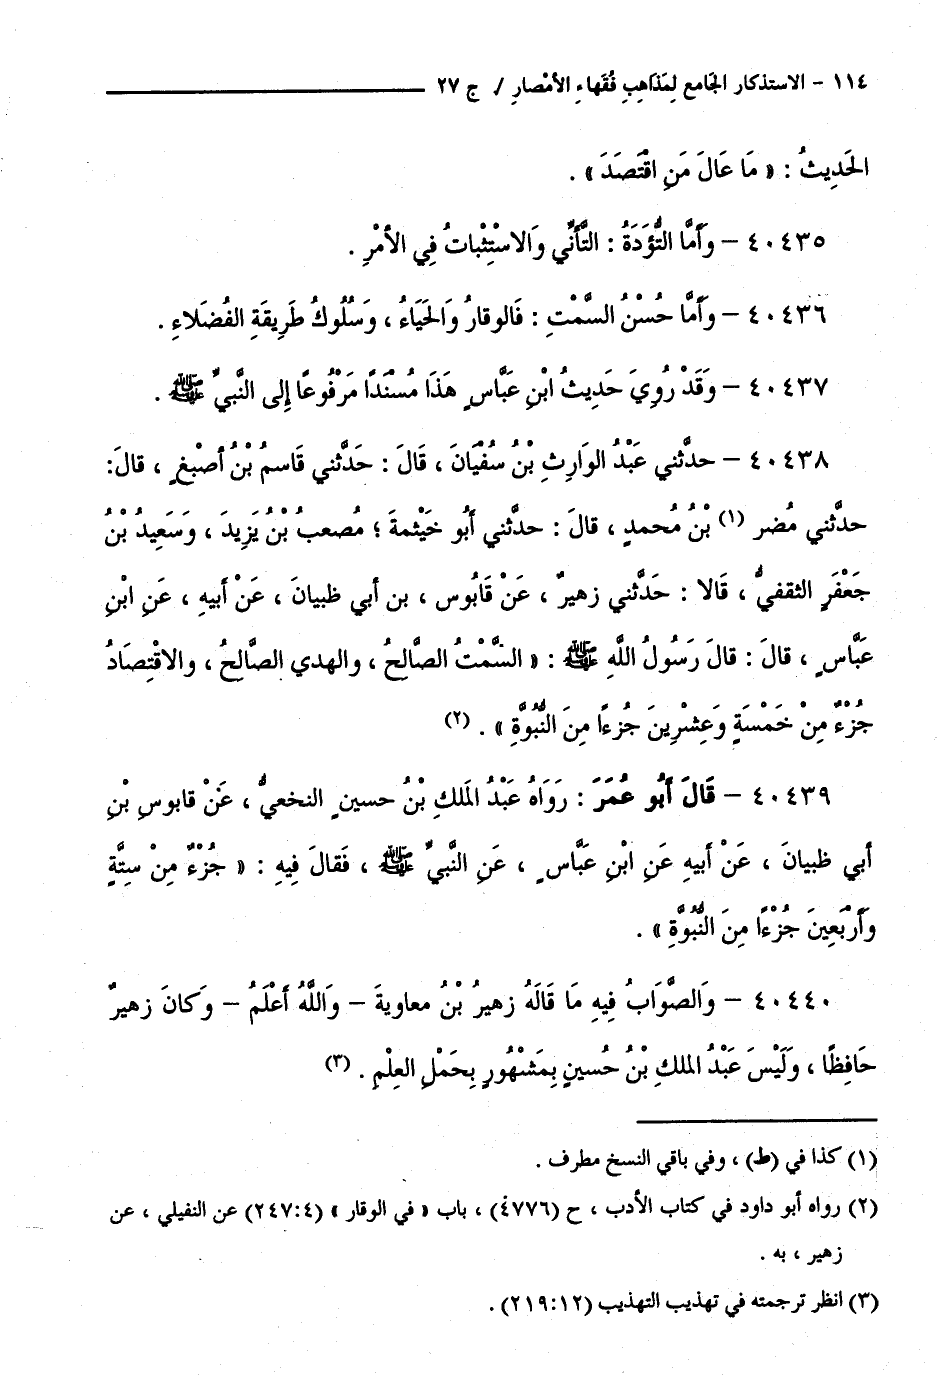 ١١٤ - الاستذكار الجَامع لِمَذَاهِبِ فُقَهاءِ الأمْصارِ / ج ٢٧
الحَدِيثُ : « مَا عَالَ مَنِ اقْتَصَدَ » .
٤٠٤٣٥ – وَأَمَّا التُّؤَدَةُ : التَّأَنِّي وَالاسْتِثْباتُ فِي الأمْرِ .
٤٠٤٣٦ – وَأَمَّا حُسْنُ السَّمْتِ : فَالوقارُ وَالحَيَاءُ ، وَسُلُوكُ طَرِيقَةِ الفُضَلاءِ .
٤٠٤٣٧ – وَقَدْ رُوِيَ حَدِيثُ ابْنِ عَبَّاسٍ هَذَا مُسْنَدًا مَرْفُوعًا إِلى النَّبِيِّ ﷺ .
٤٠٤٣٨ – حدَّثني عَبْدُ الوَارِثِ بْنُ سُفْيَانَ ، قَالَ : حَدَّثني قَاسِمُ بْنُ أصْبغٍ ، قالَ:
حدَّثني مُضر (١) بْنُ مُحمدٍ ، قالَ : حدَّثني أَبُو خَيْثمةَ ؛ مُصعبُ بْنُ يَزِيدَ ، وَسَعِيدُ بْنُ
جَعْفَرٍ الثقفيُّ ، قَالا : حَدَّثني زهيرٌ ، عَنْ قَابُوس ، بن أبي ظبيانَ ، عَنْ أَبيهِ ، عَنِ ابْنِ
عَبَّاسٍ ، قَالَ : قالَ رَسُولُ اللَّهِ ﷺ : « السَّمْتُ الصَّالحُ ، والهدي الصَّالحُ ، والاقْتِصَادُ
جُزْءٌ مِنْ خَمْسَةٍ وَعِشْرِينَ جُزءًا مِنَ النُّبُوَّةِ » . (٢)
٤٠٤٣٩ – قَالَ أَبُو عُمَرَ : رَوَاهُ عَبْدُ المَلكِ بْنُ حسينٍ النخعيُّ ، عَنْ قابوسِ بْنِ
أبي ظبيانَ ، عَنْ أبيهِ عَنِ ابْنِ عَبَّاسٍ ، عَنِ النَّبِيِّ ﷺ ، فَقالَ فِيهِ : « جُزْءٌ مِنْ ستَّةٍ
وَأَرْبَعِينَ جُزْءًا مِنَ النُّبُوَّةِ » .
٤٠٤٤٠ – وَالصَّوَابُ فِيهِ مَا قَالَهُ زهيرُ بْنُ معاويةَ – وَاللَّهُ أعْلَمُ – وَكَانَ زهيرٌ
حَافِظًا ، وَلَيْسَ عَبْدُ الملكِ بْنُ حُسينٍ بِمَشْهُورٍ بِحَمْلِ العِلْمِ . (٣)
(١) كذا في (ط) ، وفي باقي النسخ مطرف .
(٢) رواه أبو داود في كتاب الأدب ، ح (٤٧٧٦) ، باب « في الوقار » (٢٤٧:٤) عن النفيلي ، عن
زهير ، به .
(٣) انظر ترجمته في تهذيب التهذيب (٢١٩:١٢) .